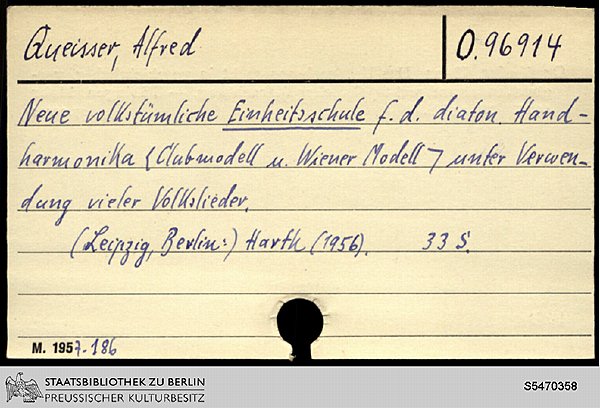 Queisser, Alfred
O. 96914
Neue volkstümliche Einheitsschule f. d. diaton. Hand-
harmonika (Clubmodell u. Wiener Modell) unter Verwen-
dung vieler Volkslieder.
(Leipzig, Berlin:) Harth (1956). 33 S.
M. 1957.186
STAATSBIBLIOTHEK ZU BERLIN
PREUSSISCHER KULTURBESITZ
S5470358